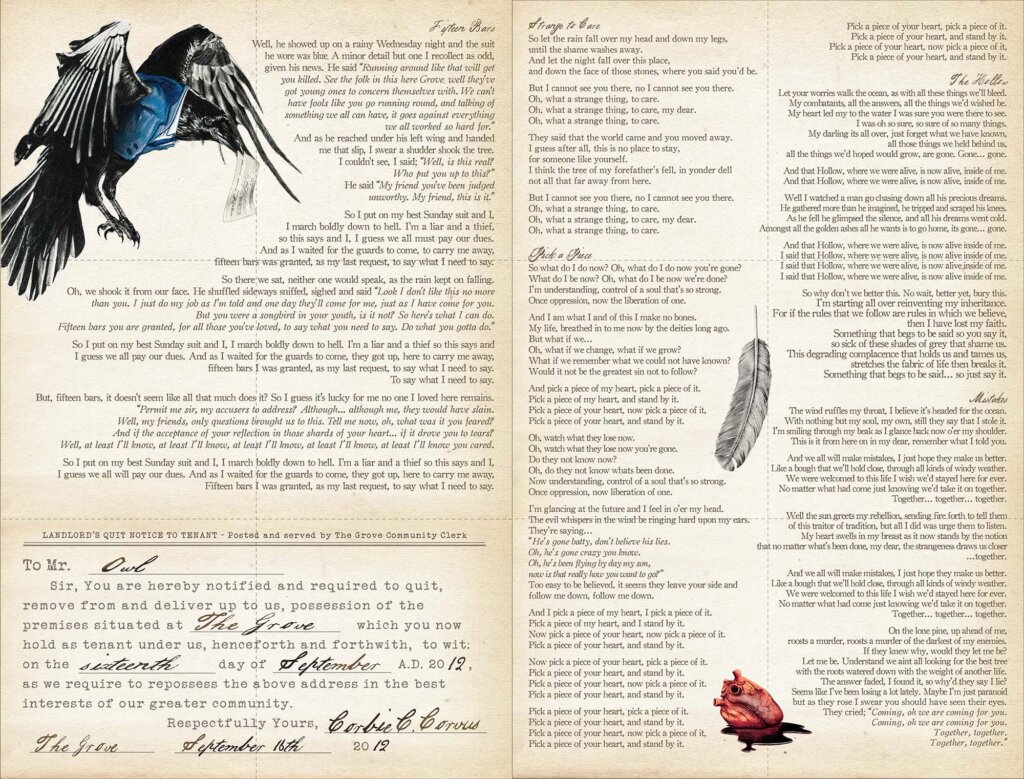 Fifteen Bars
Well, he showed up on a rainy Wednesday night and the suit
he wore was blue. A minor detail but one I recollect as odd,
given his news. He said "Running around like that will get
you killed. See the folk in this here Grove, well they've
got young ones to concern themselves with. We can't
have fools like you go running round, and talking of
something we all can have, it goes against everything
we all worked so hard for."
And as he reached under his left wing and handed
me that slip, I swear a shudder shook the tree.
I couldn't see, I said; "Well, is this real?
Who put you up to this?"
He said "My friend you've been judged
unworthy. My friend, this is it."
So I put on my best Sunday suit and I,
I march boldly down to hell. I'm a liar and a thief,
so this says and I, I guess we all must pay our dues.
And as I waited for the guards to come, to carry me away,
fifteen bars was granted, as my last request, to say what I need to say.
So there we sat, neither one would speak, as the rain kept on falling.
Oh, we shook it from our face. He shuffled sideways sniffed, sighed and said "Look I don't like this no more
than you. I just do my job as I'm told and one day they'll come for me, just as I have come for you.
But you were a songbird in your youth, is it not? So here's what I can do.
Fifteen bars you are granted, for all those you've loved, to say what you need to say. Do what you gotta do."
So I put on my best Sunday suit and I, I march boldly down to hell. I'm a liar and a thief so this says and
I guess we all pay our dues. And as I waited for the guards to come, they got up, here to carry me away,
fifteen bars I was granted, as my last request, to say what I need to say.
To say what I need to say.
But, fifteen bars, it doesn't seem like all that much does it? So I guess it's lucky for me no one I loved here remains.
"Permit me sir, my accusers to address? Although... although me, they would have slain.
Well, my friends, only questions brought us to this. Tell me now, oh, what was it you feared?
And if the acceptance of your reflection in those shards of your heart... if it drove you to tears?
Well, at least I'll know, at least I'll know, at least I'll know, at least I'll know you cared.
So I put on my best Sunday suit and I, I march boldly down to hell. I'm a liar and a thief so this says and I,
I guess we all will pay our dues. And as I waited for the guards to come, they got up, here to carry me away,
Fifteen bars I was granted, as my last request, to say what I need to say.
LANDLORD'S QUIT NOTICE TO TENANT - Posted and served by The Grove Community Clerk
To Mr. Owl
Sir, You are hereby notified and required to quit,
remove from and deliver up to us, possession of the
premises situated at The Grove which you now
hold as tenant under us, henceforth and forthwith, to wit:
on the sixteenth day of September A.D. 2012,
as we require to repossess the above address in the best
interests of our greater community.
Respectfully Yours, Corbie C. Corvus
The Grove September 16th 2012
Strange to Care
So let the rain fall over my head and down my legs,
until the shame washes away.
And let the night fall over this place,
and down the face of those stones, where you said you'd be.
But I cannot see you there, no I cannot see you there.
Oh, what a strange thing, to care.
Oh, what a strange thing, to care, my dear.
Oh, what a strange thing, to care.
They said that the world came and you moved away.
I guess after all, this is no place to stay,
for someone like yourself.
I think the tree of my forefather's fell, in yonder dell
not all that far away from here.
But I cannot see you there, no I cannot see you there.
Oh, what a strange thing, to care.
Oh, what a strange thing, to care, my dear.
Oh, what a strange thing, to care.
Pick a Piece
So what do I do now? Oh, what do I do now you're gone?
What do I be now? Oh, what do I be now we're done?
I'm understanding, control of a soul that's so strong.
Once oppression, now the liberation of one.
And I am what I and of this I make no bones.
My life, breathed in to me now by the deities long ago.
But what if we...
Oh, what if we change, what if we grow?
What if we remember what we could not have known?
Would it not be the greatest sin not to follow?
And pick a piece of my heart, pick a piece of it.
Pick a piece of my heart, and stand by it.
Pick a piece of your heart, now pick a piece of it,
Pick a piece of your heart, and stand by it.
Oh, watch they lose now.
Oh, watch they lose now you're gone.
Do they not know now?
Oh, do they not know whats been done.
Now understanding, control of a soul that's so strong.
Once oppression, now liberation of one.
I'm glancing at the future and I feel in o'er my head.
The evil whispers in the wind be ringing hard upon my ears.
They're saying...
"He's gone batty, don't believe his lies.
Oh, he's gone crazy you know.
Oh, he's been flying by day my son,
now is that really how you want to go?"
Too easy to be believed, it seems they leave your side and
follow me down, follow me down.
And I pick a piece of my heart, I pick a piece of it.
Pick a piece of my heart, and I stand by it.
Now pick a piece of your heart, now pick a piece of it.
Pick a piece of your heart, and stand by it.
Now pick a piece of your heart, pick a piece of it.
Pick a piece of your heart, and stand by it.
Pick a piece of your heart, now pick a piece of it,
Pick a piece of your heart, and stand by it.
Pick a piece of your heart, pick a piece of it.
Pick a piece of your heart, and stand by it.
Pick a piece of your heart, now pick a piece of it,
Pick a piece of your heart, and stand by it.
Pick a piece of your heart, pick a piece of it.
Pick a piece of your heart, and stand by it.
Pick a piece of your heart, now pick a piece of it,
Pick a piece of your heart, and stand by it.
The Hollow
Let your worries walk the ocean, as with all these things we'll bleed.
My combatants, all the answers, all the things we'd wished be.
My heart led my to the water I was sure you were there to see.
I was oh so sure, so sure of so many things.
My darling its all over, just forget what we have known,
all those things we held behind us,
all the things we'd hoped would grow, are gone. Gone... gone.
And that Hollow, where we were alive, is now alive inside of me.
And that Hollow, where we were alive, is now alive, inside of me.
Well I watched a man go chasing down all his precious dreams.
He gathered more than he imagined, he tripped and scraped his knees.
As he fell he glimpsed the silence, and all his dreams went cold.
Amongst all the golden ashes all he wants is to go home, its gone... gone.
And that Hollow, where we were alive, is now alive inside of me.
I said that Hollow, where we were alive, is now alive inside of me.
I said that Hollow, where we were alive, is now alive inside of me.
I said that Hollow, where we were alive, is now alive inside of me.
So why don't we better this. No wait, better yet, bury this.
I'm starting all over reinventing my inheritance.
For if the rules that we follow are rules in which we believe,
then I have lost my faith.
Something that begs to be said so you say it,
so sick of these shades of grey that shame us.
This degrading complacence that holds us and tames us,
stretches the fabric of life then breaks it.
Something that begs to be said... so just say it.
Mistakes
The wind ruffles my throat, I believe it's headed for the ocean.
With nothing but my soul, my own, still they say that I stole it.
I'm smiling through my beak as I glance back now o'er my shoulder.
This is it from here on in my dear, remember what I told you.
And we all will make mistakes, I just hope they make us better.
Like a bough that we'll hold close, through all kinds of windy weather.
We were welcomed to this life I wish we'd stayed here for ever.
No matter what had come just knowing we'd take it on together.
Together... together... together.
Well the sun greets my rebellion, sending fire forth to tell them
of this traitor of tradition, but all I did was urge them to listen.
My heart swells in my breast as it now stands by the notion
that no matter what's been done, my dear, the strangeness draws us closer
...together.
And we all will make mistakes, I just hope they make us better.
Like a bough that we'll hold close, through all kinds of windy weather.
We were welcomed to this life I wish we'd stayed here for ever.
No matter what had come just knowing we'd take it on together.
Together... together... together.
On the lone pine, up ahead of me,
roosts a murder, roosts a murder of the darkest of my enemies.
If they knew why, would they let me be?
Let me be. Understand we aint all looking for the best tree
with the roots watered down with the weight of another life.
The answer faded, I found it, so why'd they say I lie?
Seems like I've been losing a lot lately. Maybe I'm just paranoid
but as they rose I swear you should have seen their eyes.
They cried; "Coming, oh we are coming for you.
Coming, oh we are coming for you.
Together, together,
Together, together."